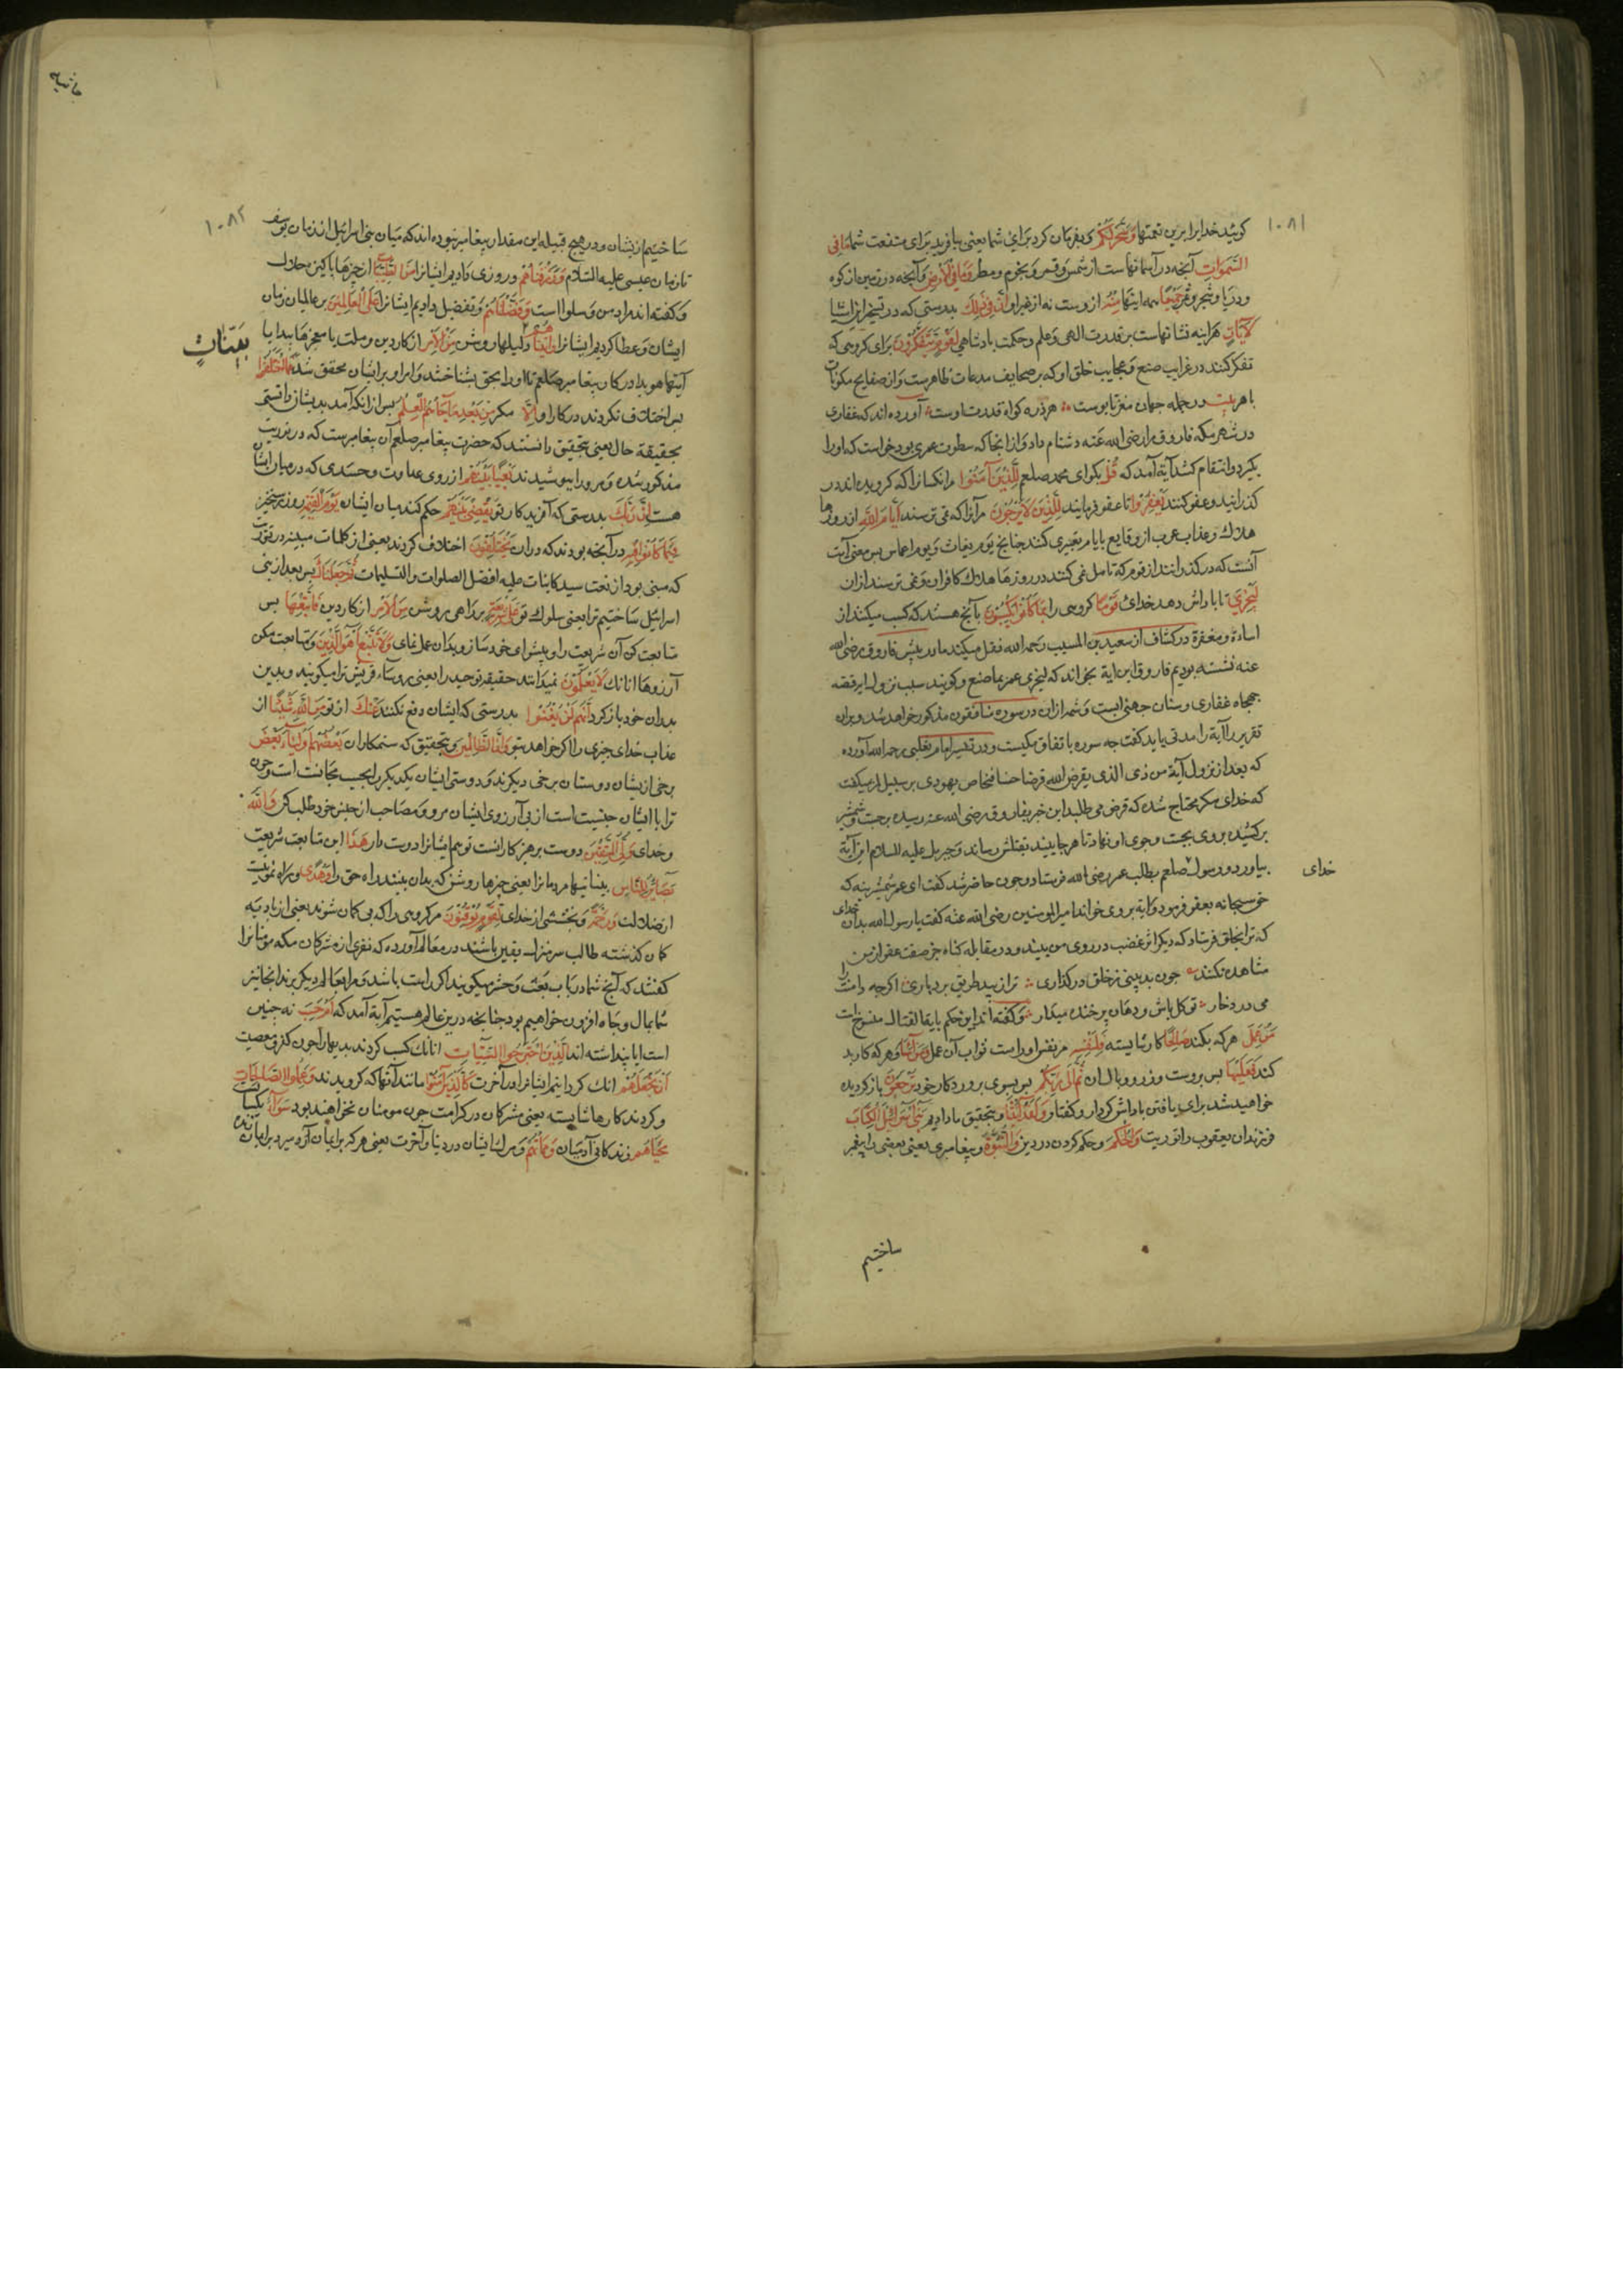 ۱۰۸۱
کویند خدایرا برین نعمتها وَسَخَّرَ لَکُم و بفرمان کرد برای شما یعنی بیافرید برای منفعت شما مَا فِی
السَّمَوَاتِ آنچه در آسمانهاست از شمس و قمر و نجوم و مطر وَمَا فِی الْاَرْضِ و آنچه در زمین از کوه
و دریا و شجر و ثمر جَمِیعًا همه اینها مِنْهُ از وست نه از غیر او اِنَّ فِی ذَلِکَ بدرستی که در تسخیر این اشیا
لَاٰیَاتٍ هراینه نشانهاست بر قدرت الهی و علم و حکمت پادشاهی لِقَوْمٍ یَتَفَکَّرُونَ برای کروهی که
تفکر کنند در غرایب صنع و عجایب خلق او که بر صحایف مدعات ظاهرست و از صفایح مکونات
باهر بیت در جمله جهان ز مغز تا پوست هر ذره کواه قدرت اوست آورده اند که غفاری
در شهر مکه فاروق را رضی الله عنه دشنام داد و از انجا که سطوت عمری بود خواست که او را
بگیرد و انتقام کشد آیة آمد که قُلْ بکو ای محمد صلعم لِلَّذِینَ آمَنُوا مر انکسانرا که کرویده اند در
کذرانید و عفو کنند یَغْفِرُوا تا عفو فرمایند لِلَّذِینَ لَا یَرْجُونَ مر آنرا که نمی ترسند اَیَّامَ اللهِ از روزها
هلاک و عذاب عرب از وقایع بایام تعبیری کنند چنانچ یوم بغاث و یوم اعماس پس معنی آیت
آنست که در کذرانند از قوم که تامل نمی کنند در روزها هلاک کافران و نمی ترسند ازان
لِیَجْزِیَ تا پاداش دهد خدای قَوْمًا کروهی را بِمَا کَانُوا یَکْسِبُونَ بآنچ هستند که کسب میکنند از
اساءة و مغفرة در کشاف از سعید بن المسیب رحمه الله نقل میکند ما در پیش فاروق رضی الله
عنه نشسته بودیم فاروق این ایة بخواند که لیجزی عمر بما صنع و کویند سبب نزول این قصه
جهجاه غفاری و سنان جهنی است و شمه ازان در سوره منافقون مذکور خواهد شد و بران
تقریر آیة را مدنی باید کفت چه سوره باتفاق مکیست و در تفسیر امام ثعلبی رحمه الله آورده
که بعد از نزول آیة من ذی الذی یقرض الله قرضا حسنا فنحاص یهودی بر سبیل میکفت
که خدای مکر محتاج شده که قرض می طلبد این خبر بفاروق رضی الله عنه رسیده برجست و شمشیر
برکشیده روی بجست و جوی او نهاد تا هر جا بیند بقتلش رساند و جبریل علیه السلام این آیة
بیاورد و رسول صلعم بطلب عمر رضی الله فرستاد و چون حاضر شد کفت ای عمر شمشیر بنه که
خدای
حق سبحانه بعفو فرمود و ایة بروی خواند امیر المومنین رضی الله عنه کفت یا رسول الله بدان خدای
که ترا بخلق فرستاد که دیکر اثر غضب در روی من نبینند و در مقابله کناه جز صفت عفو از من
مشاهده نکنند چون بد بینی ز خلق در کذاری ترا زیبد طریق بردباری اکرچه دامنت را
می درد خار تو کل باش و دهان پر خنده میدار و کفته اند این حکم بایة القتال منسوخ است
مَنْ عَمِلَ هر که بکند صَالِحًا کار شایسته فَلِنَفْسِهِ مر نفس او راست ثواب آن عمل وَمَنْ اَسَاءَ و هر که کار بد
کند فَعَلَیْهَا پس بروست وزر و وبال ان ثُمَّ اِلَی رَبِّکُمْ پس بسوی پروردکار خود تُرْجَعُونَ بازکردیده
خواهید شد برای یافتن پاداش کردار و کفتار وَلَقَدْ آتَیْنَا و بتحقیق ما دادیم بَنِی اِسْرَائِیلَ الْکِتَابَ
فرزندان یعقوب را توریت وَالْحُکْمَ و حکم کردن در دین وَالنُّبُوَّةَ و پیغامبری یعنی بعضی را پیغمبر
ساختیم
۱۰۸۲
ساختیم از یشان و در هیچ قبیله این مقدار پیغامبر نبوده اند که میان بنی اسرائیل از زمان یوسف
تا زمان عیسی علیه السلام وَرَزَقْنَاهُمْ و روزی دادیم ایشانرا مِنَ الطَّیِّبَاتِ از چیزها پاکیزه حلال
و کفته اند مراد من و سلوا است وَفَضَّلْنَاهُمْ و تفضیل دادیم ایشانرا عَلَی الْعَالَمِینَ بر عالمیان زمان
ایشان و عطا کردیم ایشانرا وَآتَیْنَاهُمْ دلیلها روشن مِنَ الْاَمْرِ از کار دین و ملت یا معجزها پیدا یا
بَیِّنَاتٍ
آیتها هویدا در کار پیغامبر صلعم تا او را بحق بشناختند و امر او بر ایشان محقق شد فَمَا اخْتَلَفُوا
پس اختلاف نکردند در کار او اِلَّا مکر مِنْ بَعْدِ مَا جَاءَهُمُ الْعِلْمُ پس از انکه آمد بدیشان دانستن
بحقیقة حال یعنی بتحقیق دانستند که حضرت پیغامبر صلعم آن پیغامبرست که در توریت
مذکور شده و مر او را بپوشیدند بَغْیًا بَیْنَهُمْ از روی عداوت و حسدی که در میان ایشان
هست اِنَّ رَبَّکَ بدرستی که آفریدکار تو یَقْضِی بَیْنَهُمْ حکم کند میان ایشان یَوْمَ الْقِیٰمَةِ روز رستخیز
فِیمَا کَانُوا فِیهِ در آنچه بودند که دران یَخْتَلِفُونَ اختلاف کردند یعنی از کلمات مبینه در توریت
که مبنی بود از نعت سید کاینات علیه افضل الصلوات و التسلیمات ثُمَّ جَعَلْنَاکَ پس بعد از بنی
اسرائیل ساختیم ترا یعنی سلوک تو عَلَی شَرِیعَةٍ بر راهی روشن مِنَ الْاَمْرِ از کار دین فَاتَّبِعْهَا پس
متابعت کن آن شریعت را و پیشوای خود ساز و بدان عمل نمای وَلَا تَتَّبِعْ اَهْوَاءَ الَّذِینَ و متابعت مکن
آرزوها انانک لَا یَعْلَمُونَ نمیدانند حقیقة توحید را یعنی روساء قریش ترا میکویند و بدین
پدران خود بازکرد اِنَّهُمْ لَنْ یُغْنُوا بدرستی که ایشان دفع نکنند عَنْکَ از تو مِنَ اللهِ شَیْئًا از
عذاب خدای چیزی را اکر خواهد بتو وَاِنَّ الظَّالِمِینَ و بتحقیق که ستمکاران بَعْضُهُمْ اَوْلِیَاءُ بَعْضٍ
برخی از یشان دوستان برخی دیکرند و دوستی ایشان بیکدیکر را بحسب مجانست است و چون
ترا با ایشان جنسیت است از پی آرزوی ایشان مرو و مصاحب از جنس خود طلب کن وَاللهُ
و خدای وَلِیُّ الْمُتَّقِینَ دوست پرهیزکارانست تو هم ایشانرا دوست دار هَذَا این متابعت شریعت
بَصَائِرُ لِلنَّاسِ بیناییها مردمانرا یعنی چیزها روشن که بدان بینند راه حق را وَهُدًی و راه نمونیست
از ضلالت وَرَحْمَةٌ و بخششی از خدای لِقَوْمٍ یُوقِنُونَ مر کروهی را که بی کمان شوند یعنی از بادیه
کمان کذشته طالب سرمنزل یقین باشند در معالم آورده که نفری از مشرکان مکه مومنانرا
کفتند که آنچ شما در باب بعث و حشر میکویند اکر راست باشد و مرا بعالم دیکر برند انجا نیز
شما بمال و جاه افزون خواهیم بود چنانچه درین عالم هستیم آیة آمد که اَمْ حَسِبَ نه چنین
است ایا پنداشته اند الَّذِینَ اجْتَرَحُوا السَّیِّئَاتِ انانک کسب کردند بدیها را چون کفر و معصیت
اَنْ نَجْعَلَهُمْ انک کردانیم ایشانرا در آخرت کَالَّذِینَ آمَنُوا مانند آنها که کرویدند وَعَمِلُوا الصَّالِحَاتِ
و کردند کارها شایسته یعنی مشرکان در کرامت چون مومنان نخواهند بود سَوَاءً یکسانست
مَحْیَاهُمْ زندکانی آدمیان وَمَمَاتُهُمْ و مرک ایشان در دنیا و آخرت یعنی هر که بر ایمان میرد بر ایمان زنده